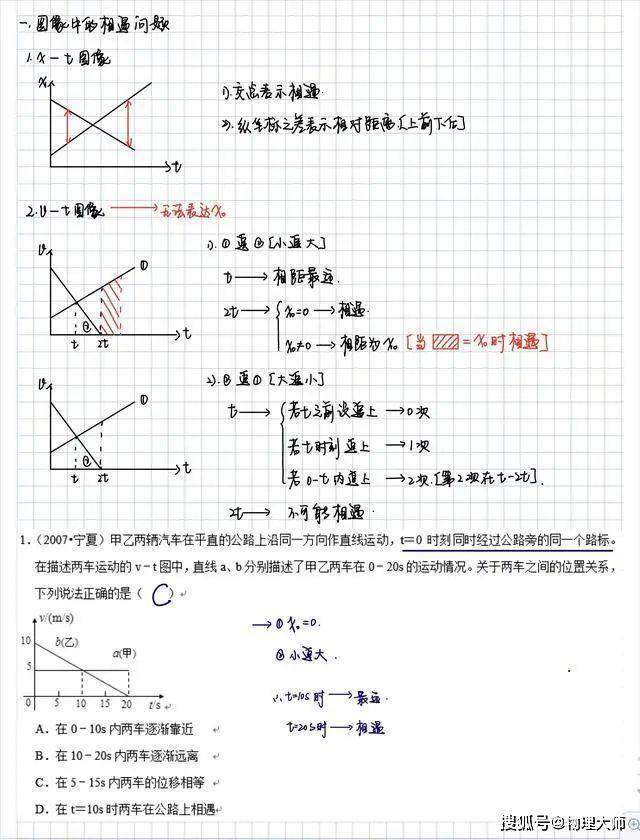 一.图像中的相遇问题
1.x－t图像
x
t
1).交点表示相遇.
2).纵坐标之差表示相对距离[上前下后]
2.v－t图像 → 无法表达x₀
v
①
②
t 2t
t
1).①追②[小追大]
t → 相距最远.
2t → { x₀=0 → 相遇.
x₀≠0 → 相距为x₀ [当 = x₀时相遇]
v
①
②
t 2t
t
2).②追①[大追小]
t → { 若t之前没追上 → 0次
若t时刻追上 → 1次
若0-t内追上 → 2次.[第2次在t-2t].
2t → 不可能相遇.
1.（2007•宁夏）甲乙两辆汽车在平直的公路上沿同一方向作直线运动，t＝0 时刻同时经过公路旁的同一个路标。
在描述两车运动的 v－t 图中，直线 a、b 分别描述了甲乙两车在 0－20s 的运动情况。关于两车之间的位置关系，
下列说法正确的是（ C ）
v/(m/s)
10
b(乙)
a(甲)
5
0 5 10 15 20 t/s
→ ① x₀=0.
② 小追大.
∴ t=10s时 → 最远.
t=20s时 → 相遇
A．在 0－10s 内两车逐渐靠近
B．在 10－20s 内两车逐渐远离
C．在 5－15s 内两车的位移相等
D．在 t＝10s 时两车在公路上相遇
搜狐号@物理大师